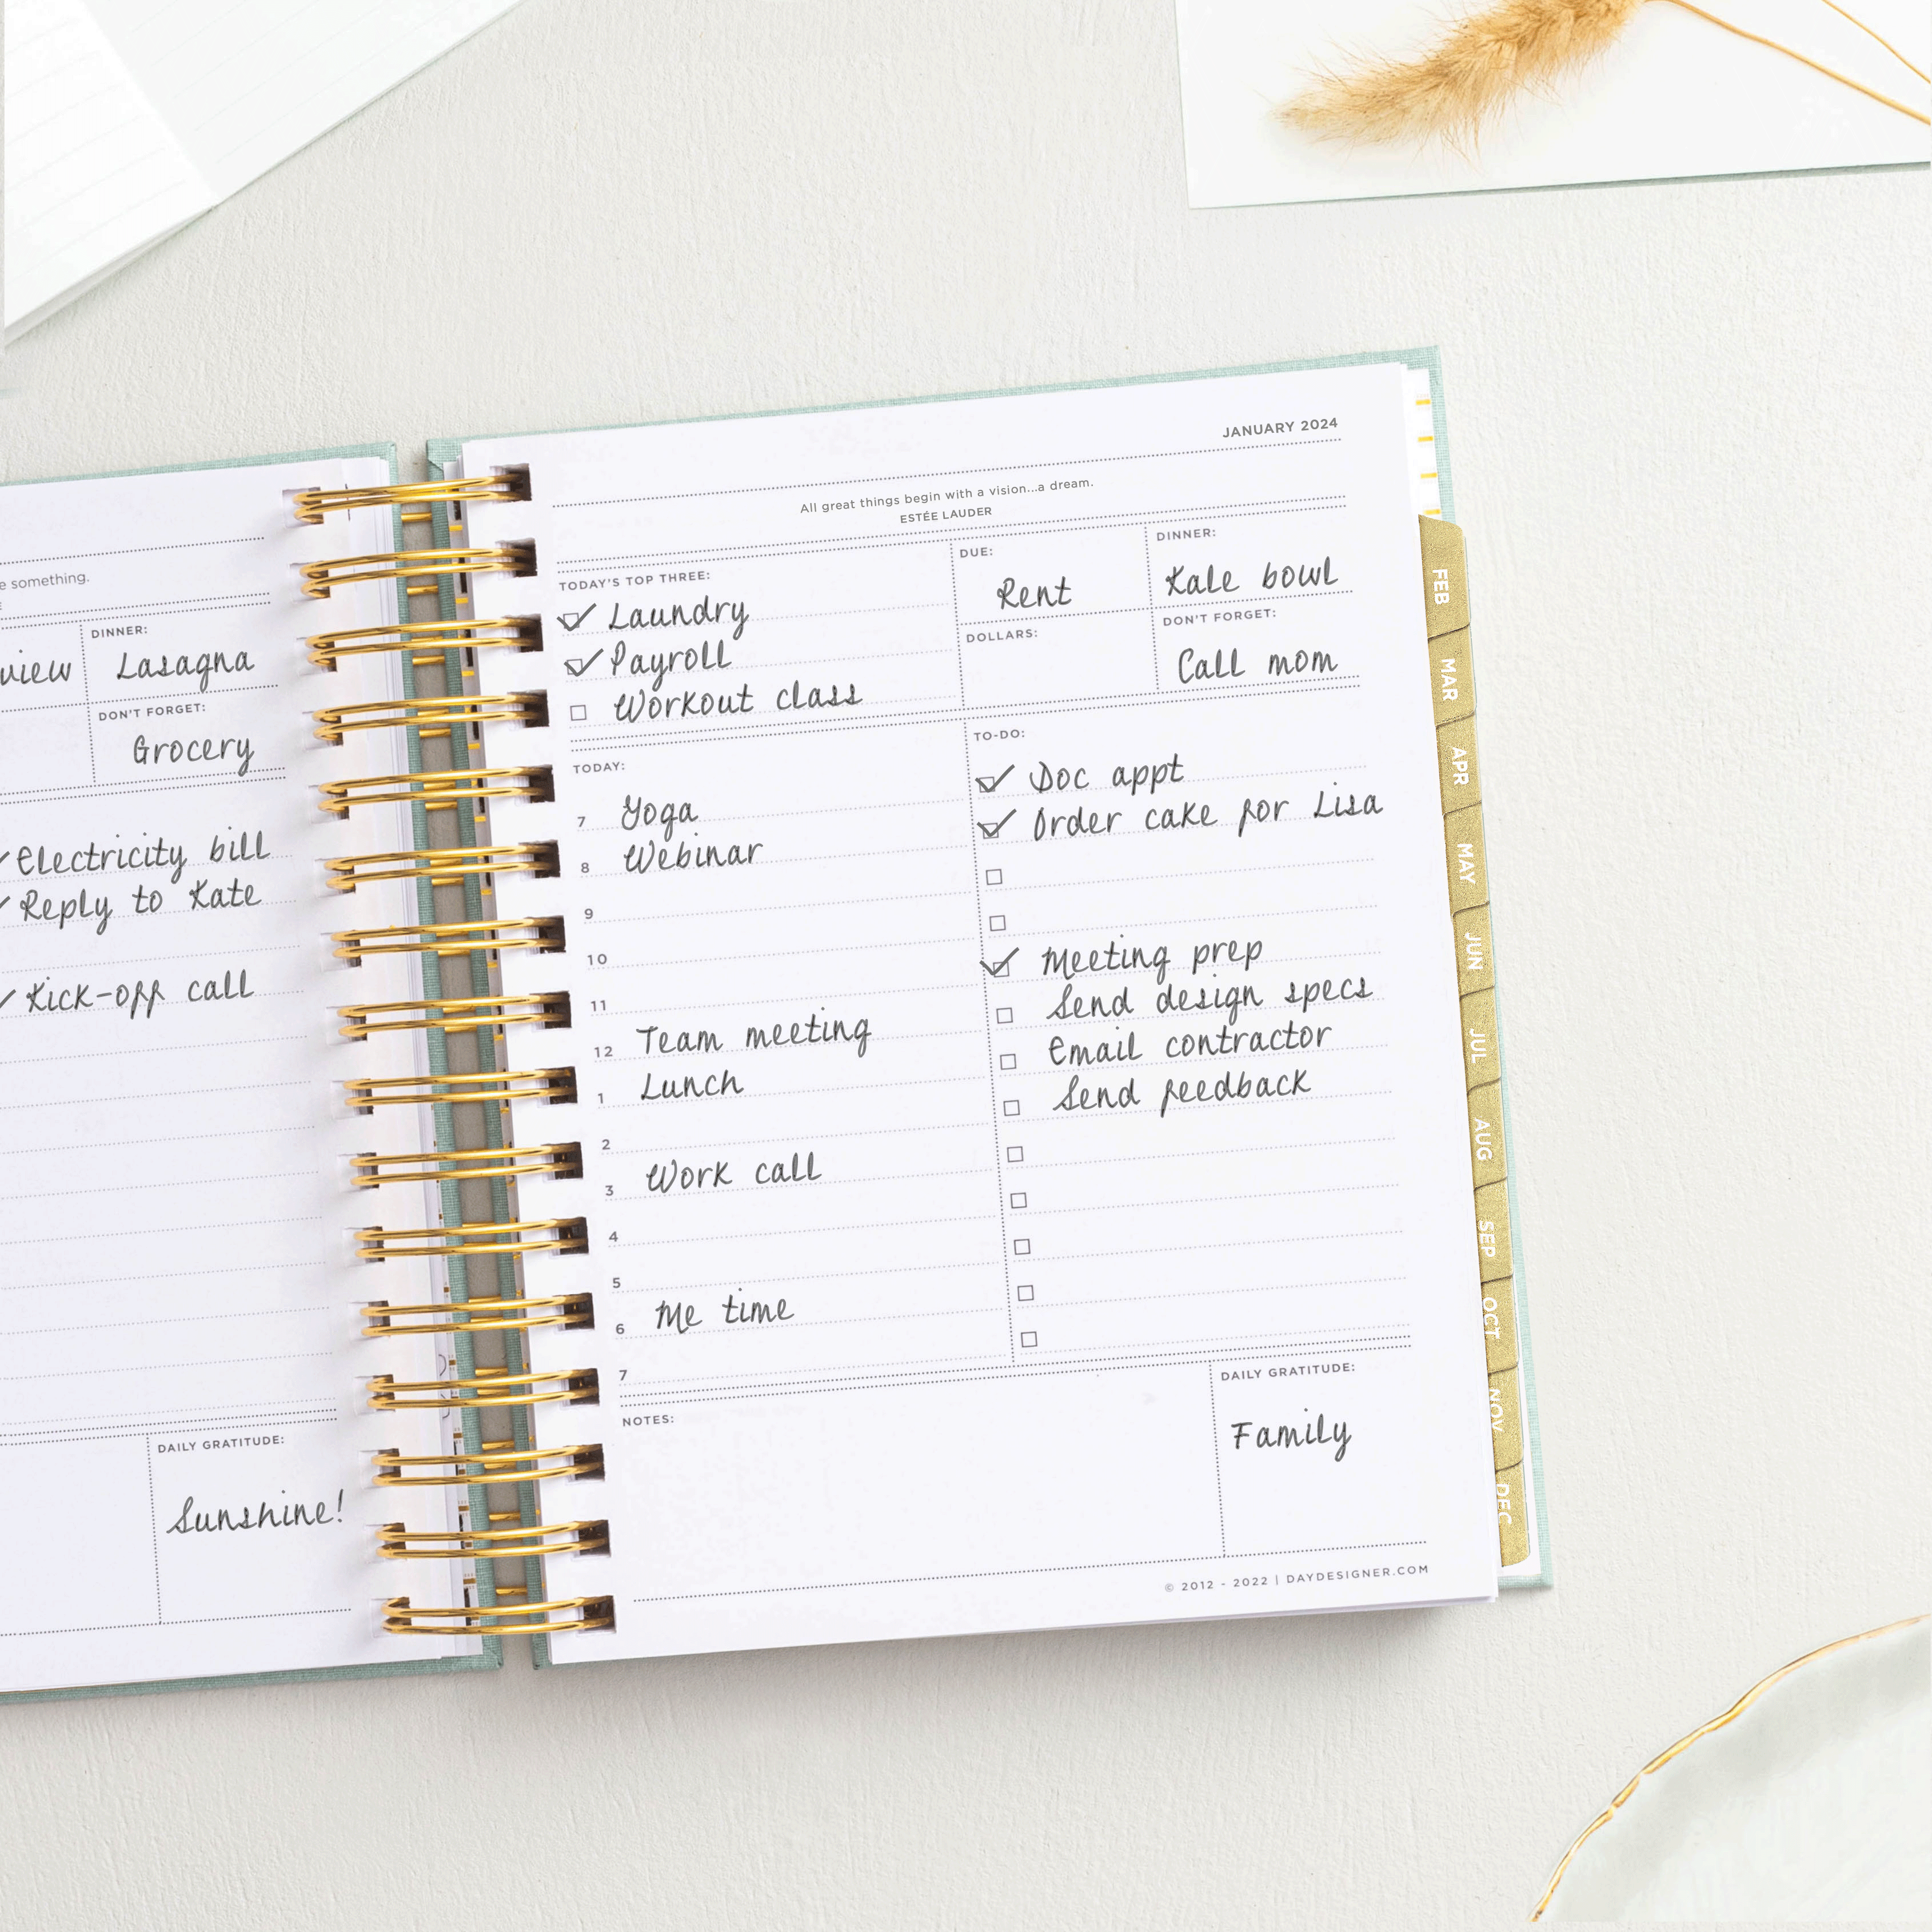 e something.
view
DINNER:
Lasagna
DON'T FORGET:
Grocery
Electricity bill
Reply to Kate
Kick-off call
DAILY GRATITUDE:
Sunshine!
JANUARY 2024
All great things begin with a vision...a dream.
ESTÉE LAUDER
TODAY'S TOP THREE:
Laundry
Payroll
Workout class
DUE:
Rent
DOLLARS:
DINNER:
Kale bowl
DON'T FORGET:
Call mom
TODAY:
7 Yoga
8 Webinar
9
10
11
12 Team meeting
1 Lunch
2
3 Work call
4
5
6 Me time
7
TO-DO:
Doc appt
Order cake for Lisa
Meeting prep
Send design specs
Email contractor
Send feedback
NOTES:
DAILY GRATITUDE:
Family
© 2012 - 2022 | DAYDESIGNER.COM
FEB
MAR
APR
MAY
JUN
JUL
AUG
SEP
OCT
NOV
DEC